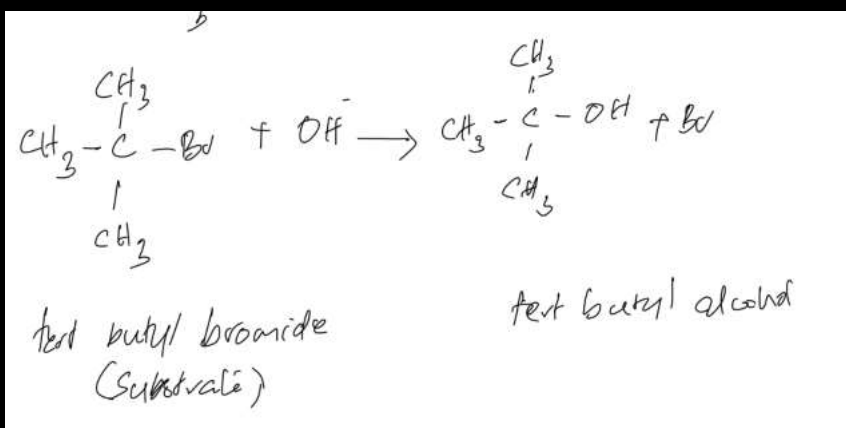 3
CH3
CH3 - C - Br + OH⁻ ⟶
CH3
CH3
CH3 - C - OH + Br
CH3
tert butyl bromide
(substrate)
tert butyl alcohol